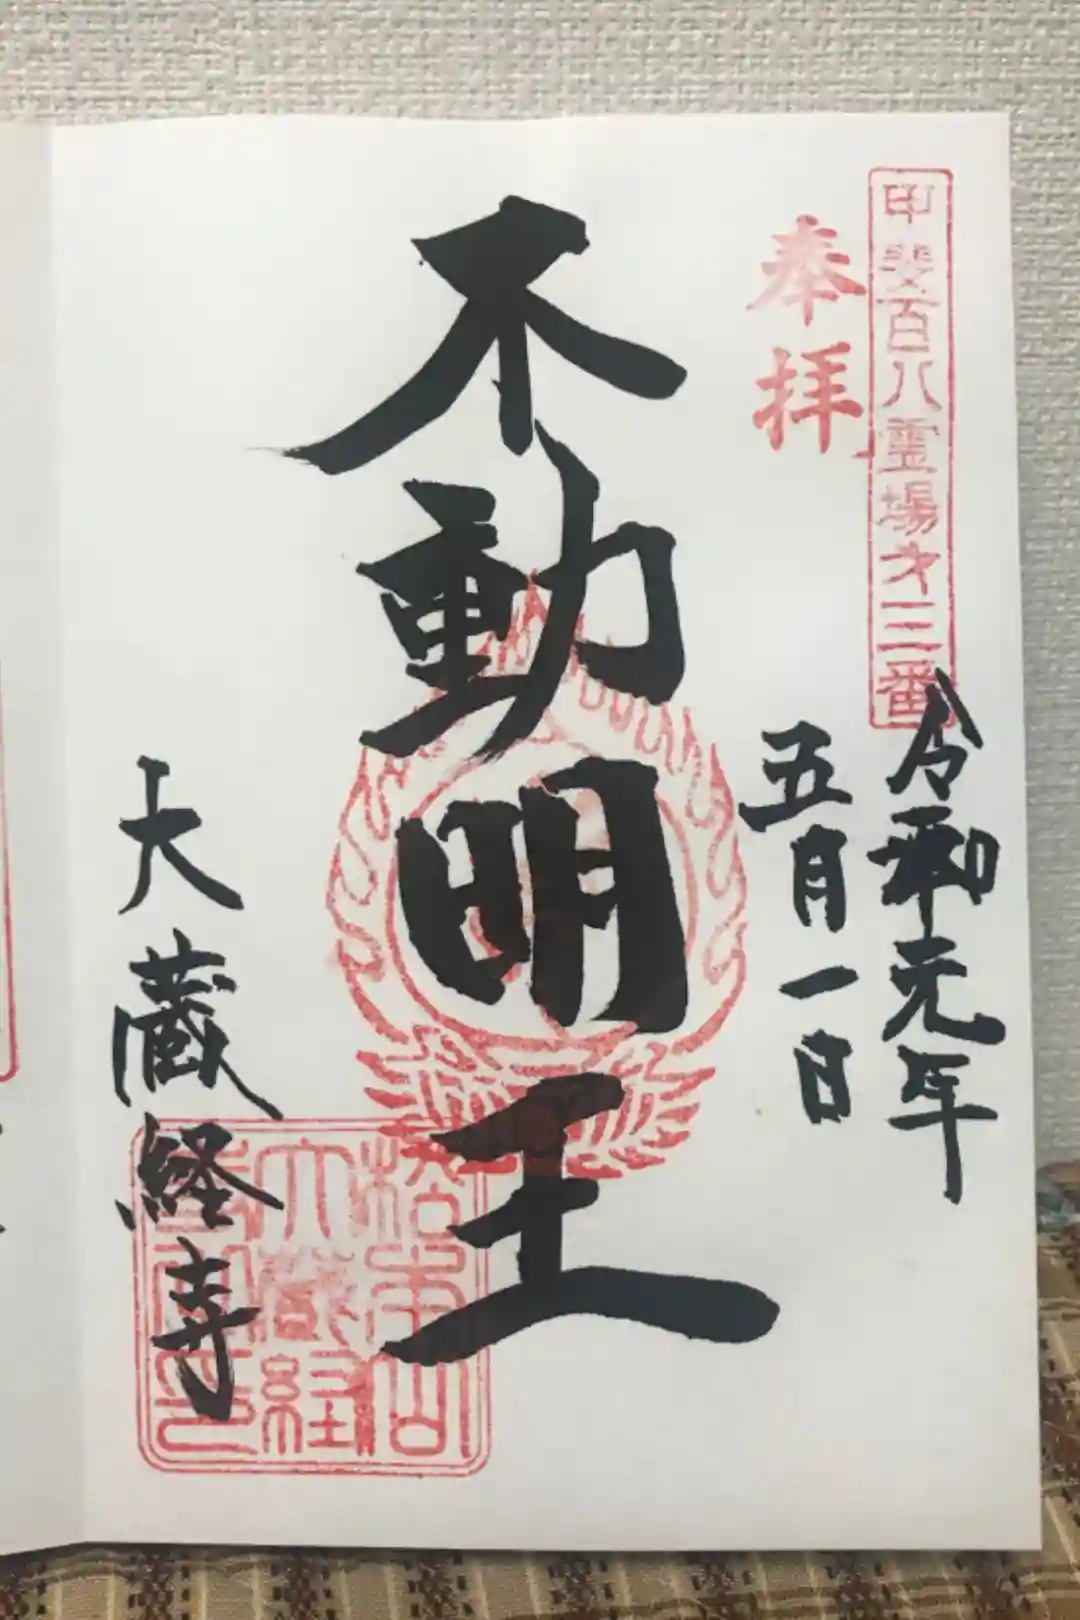 甲斐百八霊場才三番
奉拝
令和元年
五月一日
不動明王
大蔵経寺
松本山
大蔵経